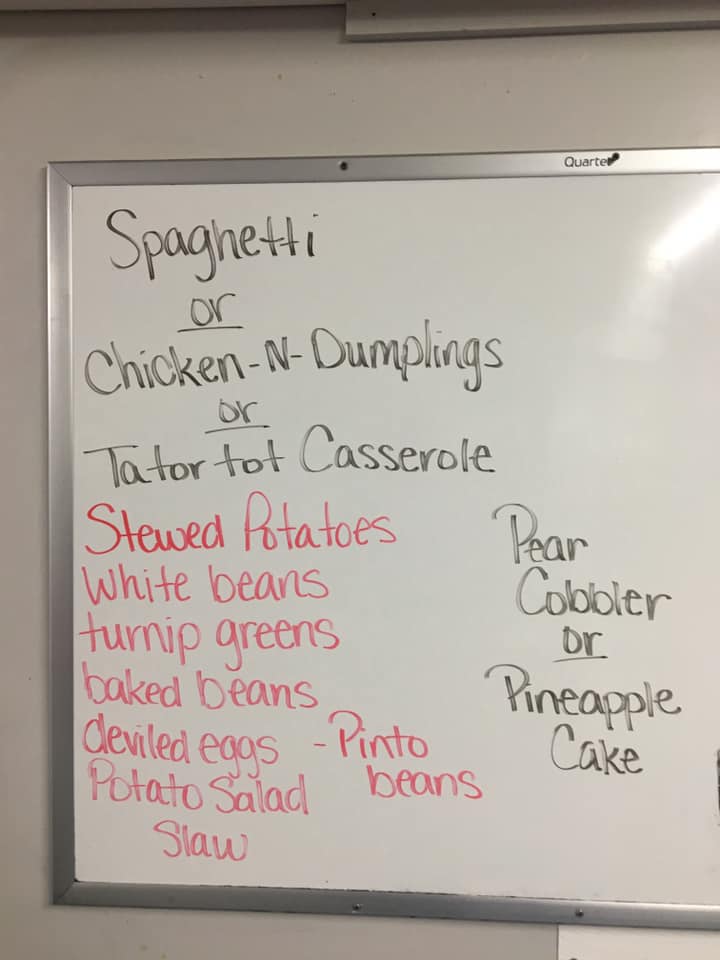 Quartet
Spaghetti
or
Chicken-N-Dumplings
or
Tator tot Casserole
Stewed Potatoes
White beans
turnip greens
baked beans
deviled eggs - Pinto
beans
Potato Salad
Slaw
Pear
Cobbler
or
Pineapple
Cake